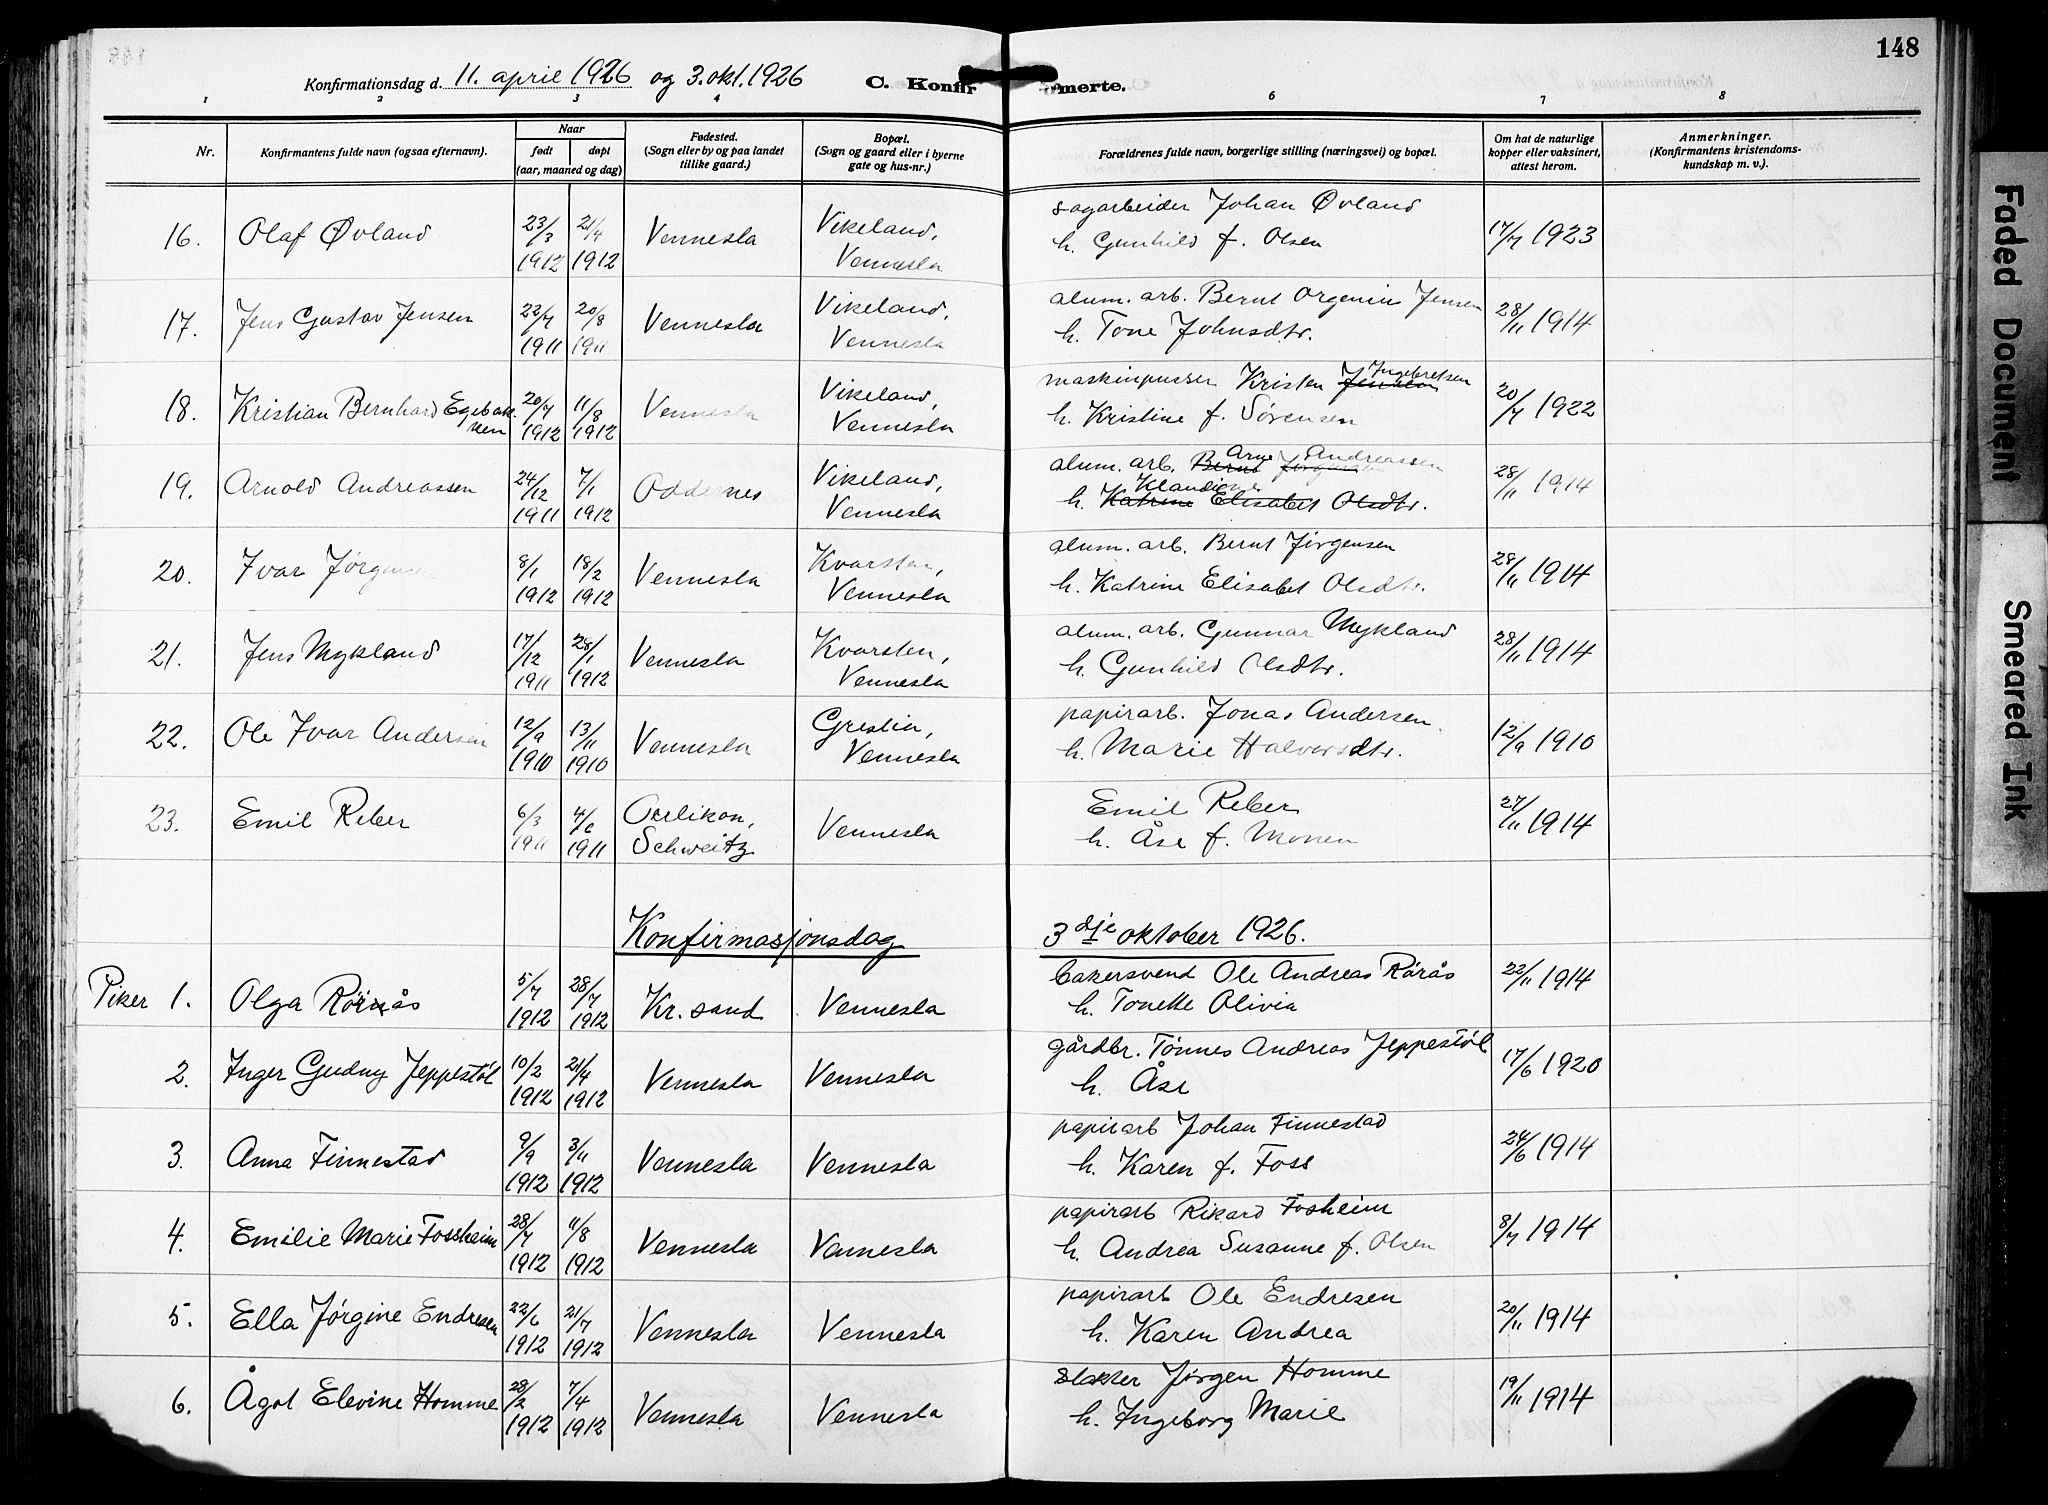 148
Konfirmationsdag d. 11. april 1926 og 3. okt. 1926 C. Konfir merte.
1 2 3 4 5 6 7 8
Nr.
Konfirmantens fulde navn (ogsaa efternavn).
Naar
født
døpt
(aar, maaned og dag)
Fødested.
(Sogn eller by og paa landet
tillike gaard.)
Bopæl.
(Sogn og gaard eller i byerne
gate og hus-nr.)
Forældrenes fulde navn, borgerlige stilling (næringsvei) og bopæl.
Om hat de naturlige
kopper eller vaksinert,
attest herom.
Anmerkninger.
(Konfirmantens kristendoms-
kundskap m. v.).
16. Olaf Øvland 23/3 1912 21/4 1912 Vennesla Vikeland, Vennesla sagarbeider Johan Øvland
h. Gunhild f. Olsen 17/7 1923
17. Jens Gustav Jensen 22/7 1911 20/8 1911 Vennesla Vikeland, Vennesla alum. arb. Bernt Orgenius Jensen
h. Tone Johnsdtr. 28/11 1914
18. Kristian Bernhard Egebakken 20/7 1912 11/8 1912 Vennesla Vikeland, Vennesla maskinpusser Kristen Jensen Ingebretsen
h. Kristine f. Sørensen 20/7 1922
19. Arnold Andreassen 24/12 1911 7/1 1912 Oddernes Vikeland, Vennesla alum. arb. Bernt Jørgensen Arne Andreassen
h. Katrine Elisabet Klandine Olsdtr. 28/11 1914
20. Ivar Jørgensen 8/1 1912 18/2 1912 Vennesla Kvarsten, Vennesla alum. arb. Bernt Jørgensen
h. Katrine Elisabet Olsdtr. 28/11 1914
21. Jens Mykland 17/12 1911 28/1 1912 Vennesla Kvarsten, Vennesla alum. arb. Gunnar Mykland
h. Gunhild Olsdtr. 28/11 1914
22. Ole Ivar Andersen 12/9 1910 13/11 1910 Vennesla Grestia, Vennesla papirarb. Jonas Andersen
h. Marie Halvorsdtr. 12/9 1910
23. Emil Reber 6/3 1911 4/6 1911 Oerlikon, Schweitz Vennesla Emil Reber
h. Åse f. Monen 27/11 1914
Konfirmasjonsdag 3dje oktober 1926.
Piker 1. Olga Rørås 5/7 1912 28/7 1912 Kr. sand Vennesla bakersvend Ole Andreas Rørås
h. Tonette Olivia 22/11 1914
2. Inger Gudny Jeppestøl 10/2 1912 21/4 1912 Vennesla Vennesla gårdbr. Tønnes Andreas Jeppestøl
h. Åse 17/6 1920
3. Anna Finnestad 9/9 1912 3/11 1912 Vennesla Vennesla papirarb Johan Finnestad
h. Karen f. Foss 24/6 1914
4. Emilie Marie Fossheim 28/7 1912 11/8 1912 Vennesla Vennesla papirarb Rikard Fosheim
h. Andrea Susanne f. Olsen 8/7 1914
5. Ella Jørgine Endresen 22/6 1912 21/7 1912 Vennesla Vennesla papirarb Ole Endresen
h. Karen Andrea 20/11 1914
6. Ågot Elevine Homme 28/2 1912 7/4 1912 Vennesla Vennesla slakter Jørgen Homme
h. Ingeborg Marie 19/11 1914
Faded Document
Smeared Ink